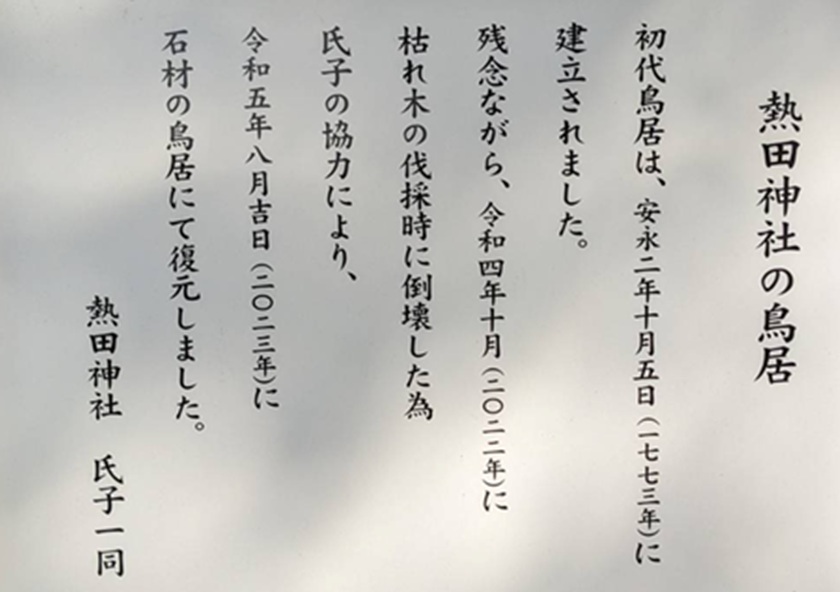 熱田神社の鳥居
初代鳥居は、安永二年十月五日（一七七三年）に
建立されました。
残念ながら、令和四年十月（二〇二二年）に
枯れ木の伐採時に倒壊した為
氏子の協力により、
令和五年八月吉日（二〇二三年）に
石材の鳥居にて復元しました。
熱田神社　氏子一同